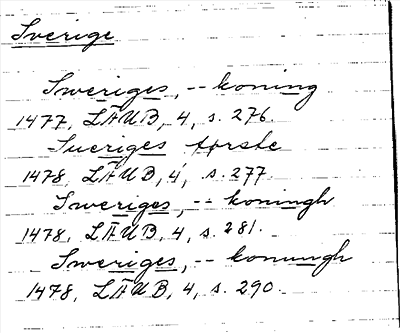 Sverige
Sweriges, -- koning
1477, LÄUB, 4, s. 276.
Sueriges første
1478, LÄUB, 4, s. 277
Sweriges, -- koningh
1478, LÄUB, 4, s. 281.
Sweriges, -- konungh
1478, LÄUB, 4, s. 290.